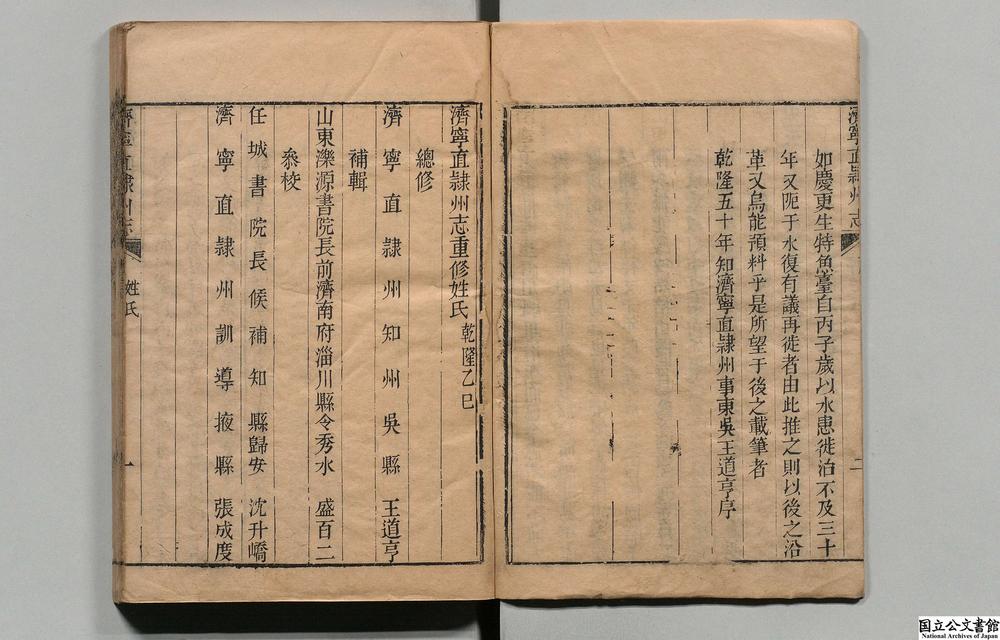 濟寧直隸州志
二
如慶更生特魚臺自丙子歲以水患徙治不及三十
年又阨于水復有議再徙者由此推之則以後之沿
革又烏能預料乎是所望于後之載筆者
乾隆五十年知濟寧直隸州事東吳王道亨序
濟寧直隸州志重修姓氏 乾隆乙巳
總修
濟寧直隸州知州吳縣 王道亨
補輯
山東濼源書院長前濟南府淄川縣令秀水 盛百二
叅校
任城書院長候補知縣歸安 沈升嶠
濟寧直隸州訓導掖縣 張成度
濟寧直隸州志
姓氏
一
国立公文書館
National Archives of Japan